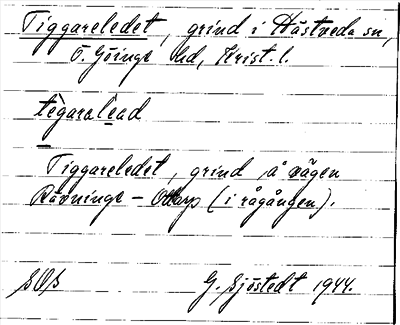 Tiggareledet, grind i Hästveda sn,
Ö. Göinge hd, Krist. l.
tegaralead
Tiggareledet, grind å vägen
Rävninge - Ottarp (i rågången).
SOS G. Sjöstedt 1944.